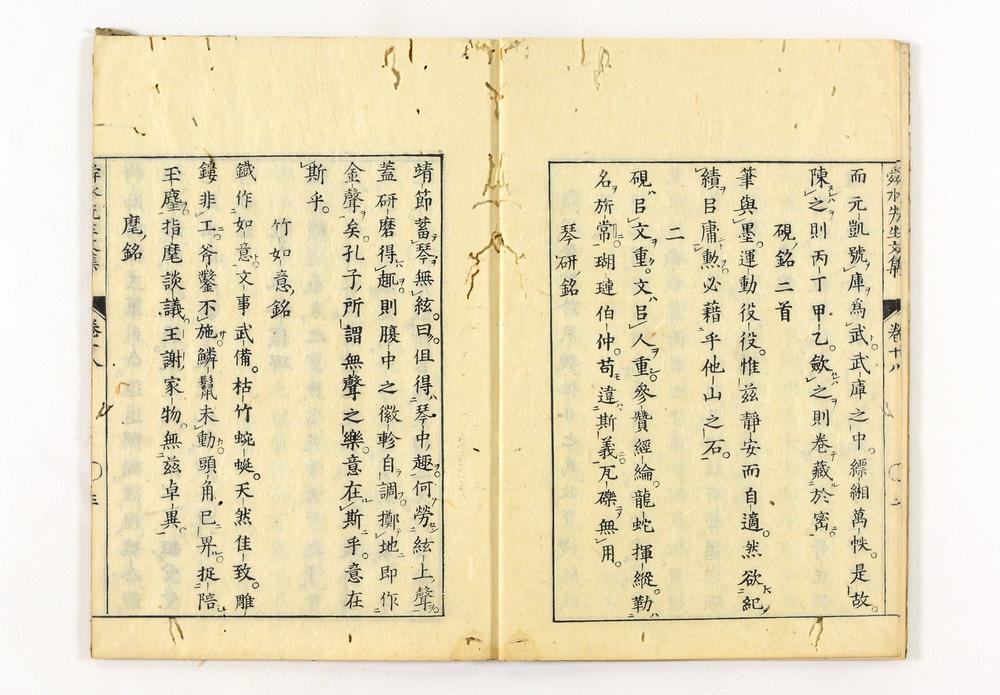 舜水先生文集 卷十八 二
而元凱號庫爲武武庫之中縹緗萬帙。是故
陳之則丙丁甲乙。斂之則卷藏於密。
硯銘二首
筆與墨。運動役役。惟茲靜安而自適。然欲紀
績㠯庸勲。必藉乎他山之石。
二
硯㠯文重。文㠯人重。參贊經綸。龍蛇揮縱。勒
名旂常。瑚璉伯仲。苟違斯義。瓦礫無用。
琴硏銘
靖節蓄琴無絃。曰。但得琴中趣。何勞絃上聲。
蓋硏磨得趣。則腹中之徽軫自調。擲地即作
金聲矣。孔子所謂無聲之樂。意在斯乎。意在
斯乎。
竹如意銘
鐵作如意。文事武備。枯竹蜿蜒。天然佳致。雕
鏤非工。斧鑿不施。鱗鬣未動。頭角已昇。捉陪
玉麈。指麾談議。王謝家物。無茲卓異。
麾銘
卷十八 三